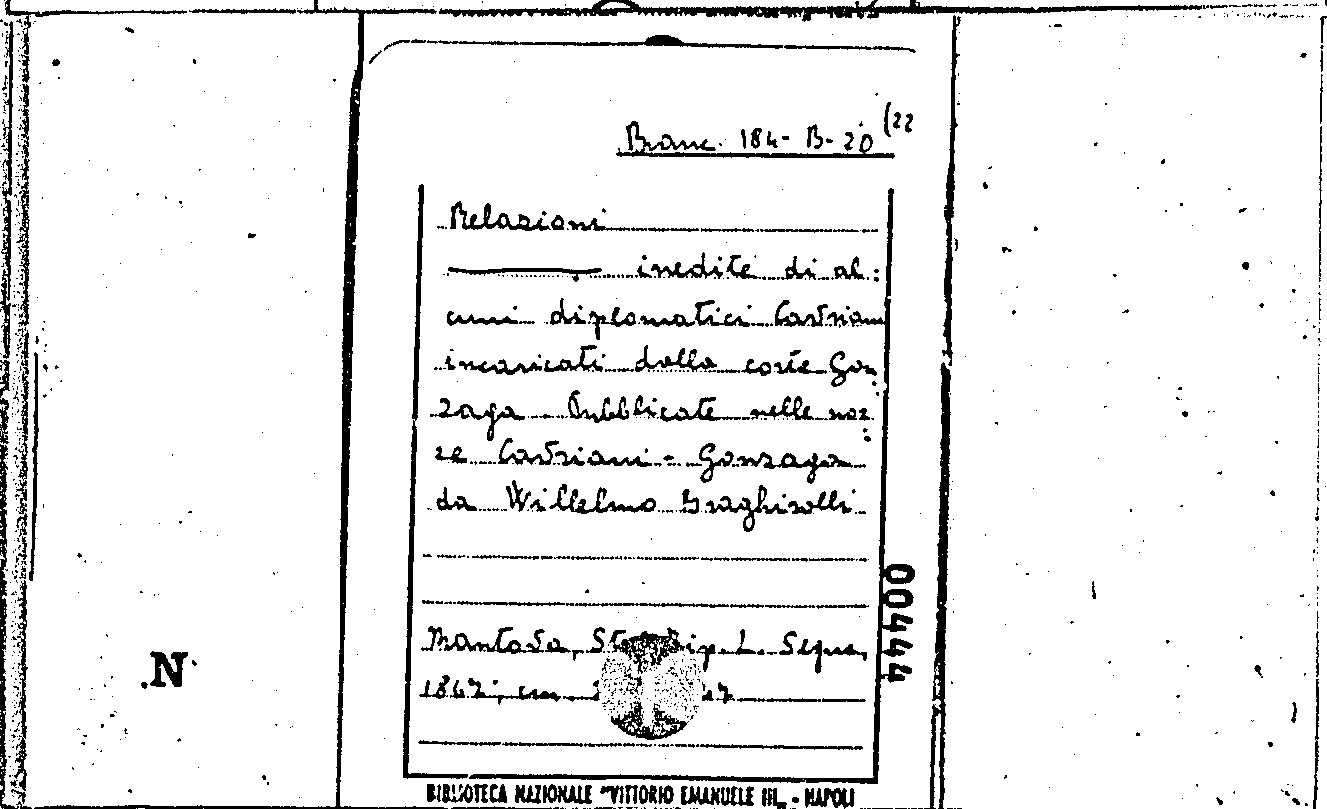 Branc. 184- B- 20 (22
Relazioni
inedite di al:
cuni diplomatici Cavriani
incaricati dalla corte Gon
zaga. Pubblicate nelle noz:
ze Cavriani - Gonzaga
da Willelmo Braghirolli
Mantova, St. Tip. L. Segna,
186 cm.
00444
N
BIBLIOTECA NAZIONALE "VITTORIO EMANUELE III„ - NAPOLI